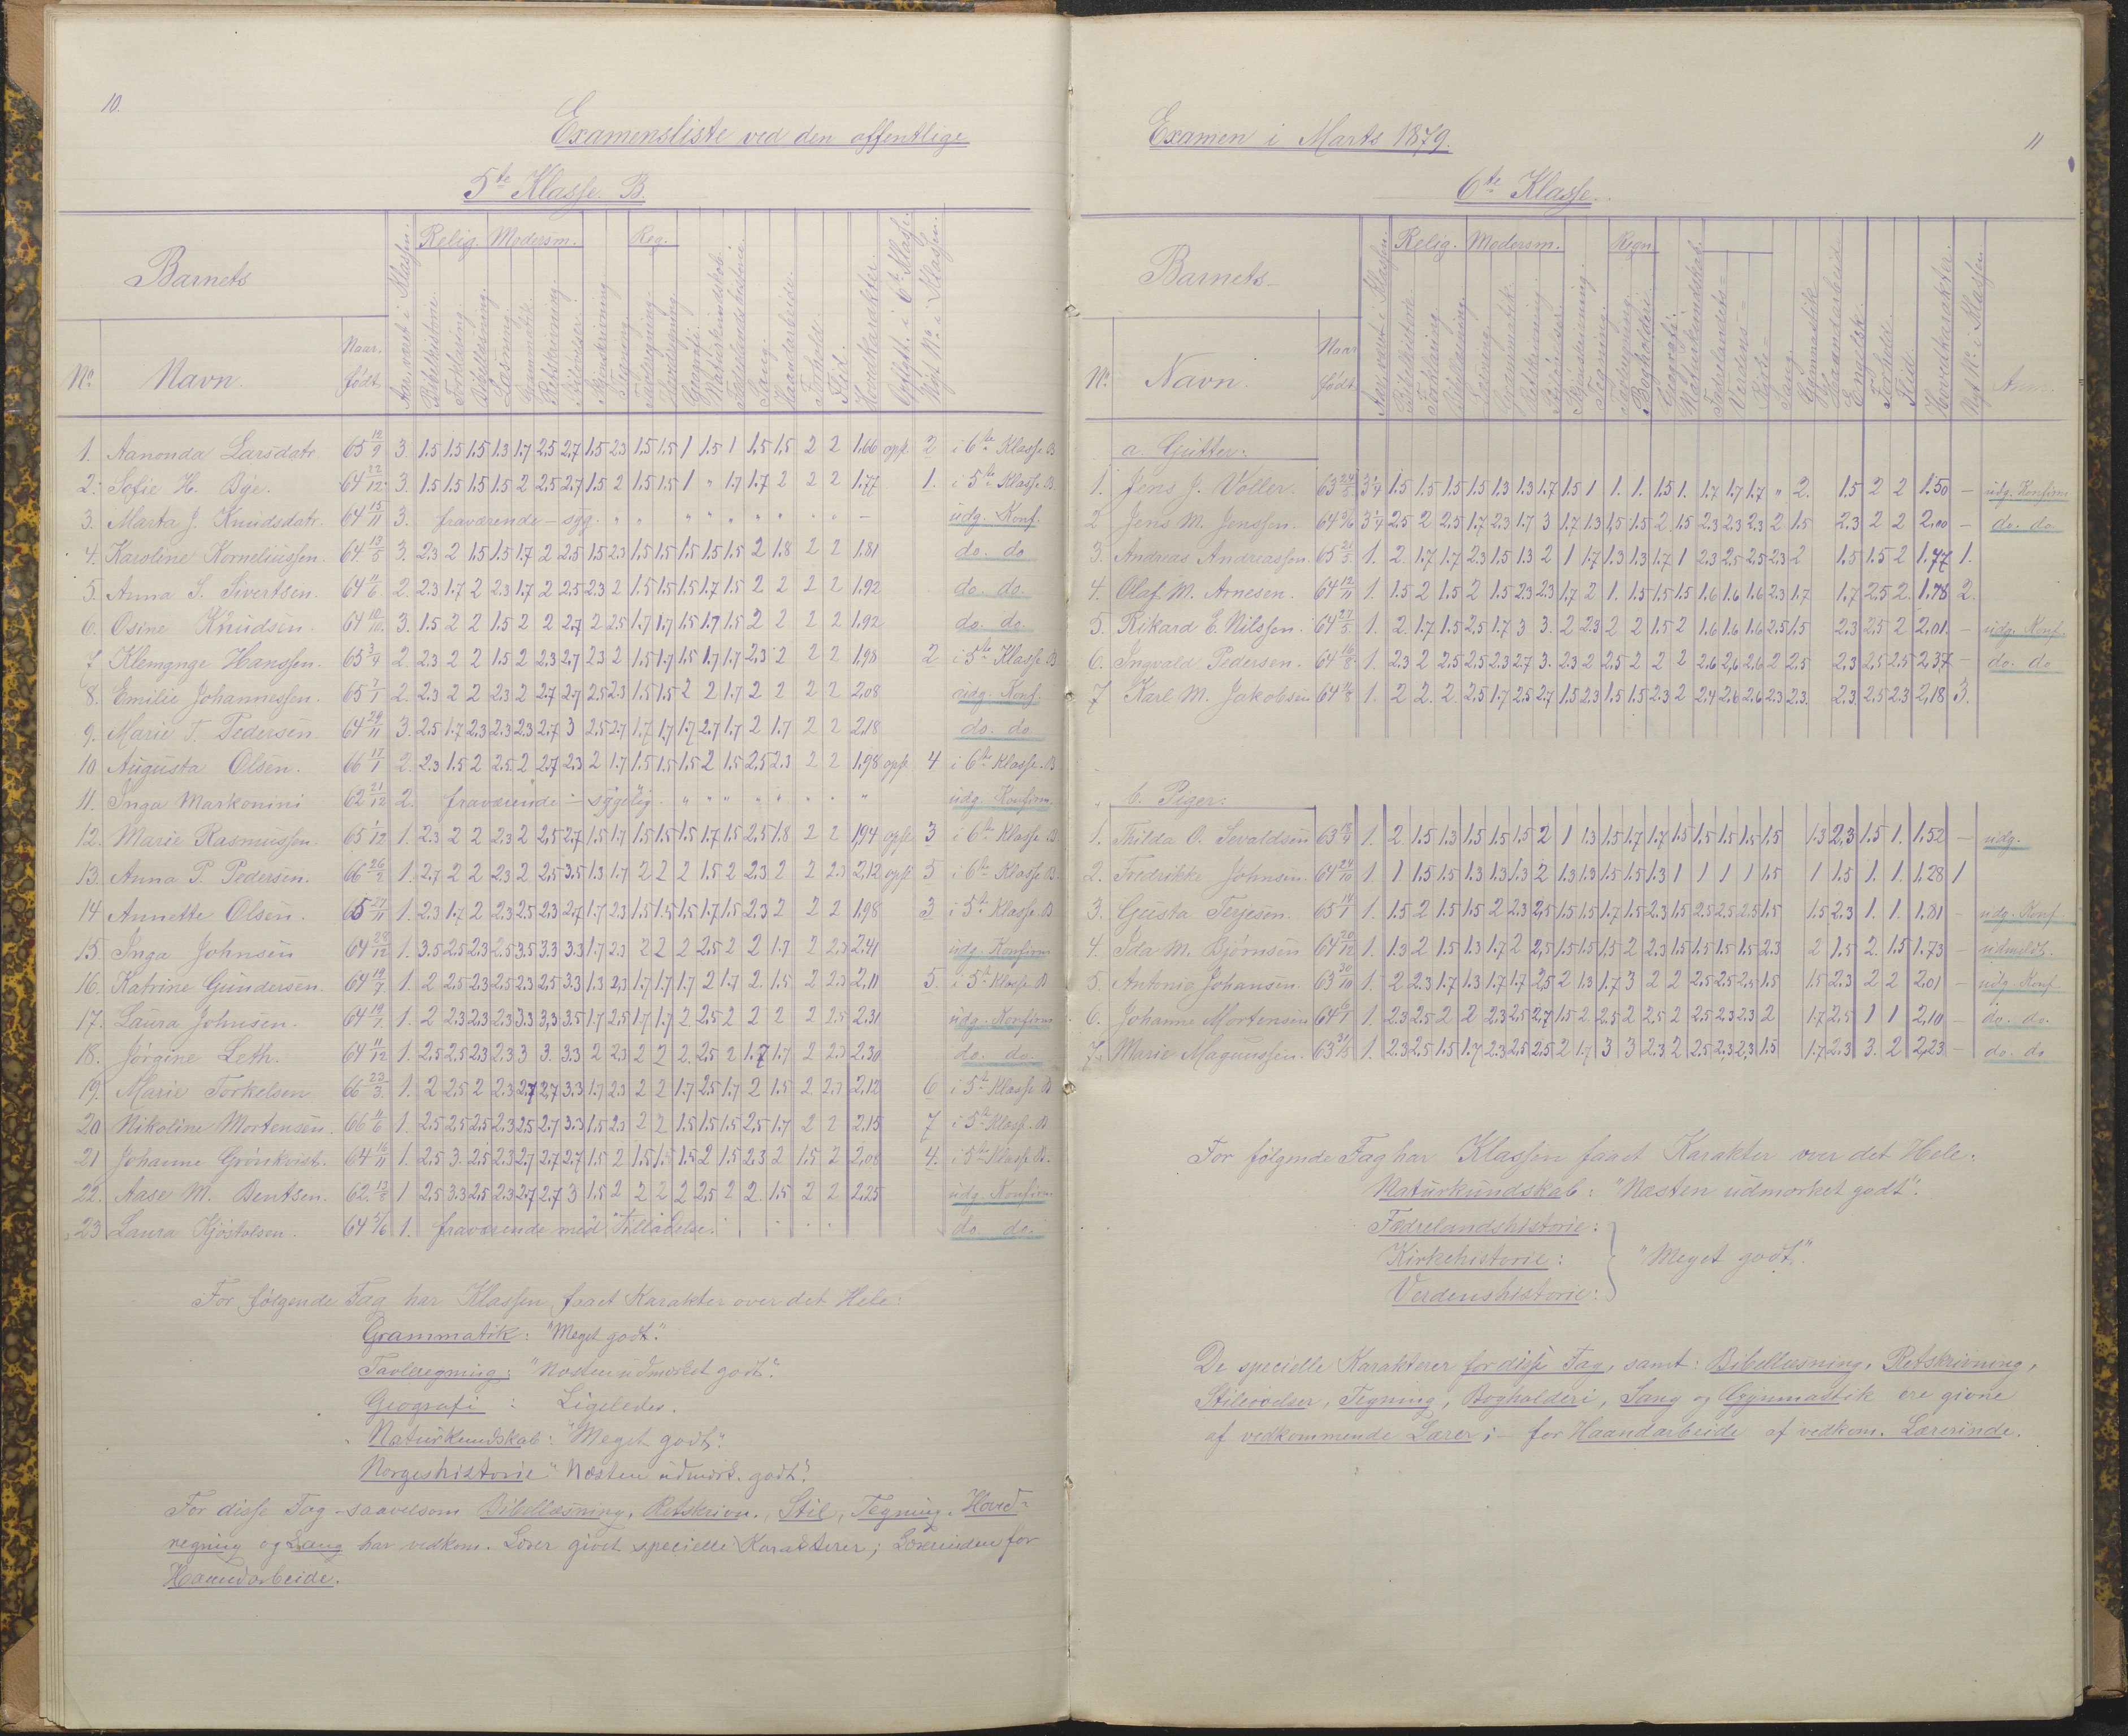 10.
Examensliste ved den offentlige
5te Klasse B.
Barnets
No Navn. Naar født Aar været i Klassen. Relig. Bibelhistorie. Forklaring. Modersm. Bibellæsning. Læsning. Grammatik. Retskrivning. Stiløvelser. Skjønskrivning Tegning. Reg. Tavleregning. Hovedregning. Geografi. Naturkundskab. Fædrelandshistorie. Sang. Haandarbeide. Forhold. Flid. Hovedkarakter. Opflytt. i 6te Klasse. Nyt No i Klassen.
1. Aanonda Larsdatr 65 12/9 3. 1.5 1.5 1.5 1.3 1.7 2.5 2.7 1.5 2.3 1.5 1.5 1 1.5 1 1.5 1.5 2 2 1.66 opf. 2 i 6te Klasse B
2. Sofie H. Bye. 64 22/12 3. 1.5 1.5 1.5 1.5 2 2.5 2.7 1.5 2 1.5 1.5 1 " 1.7 1.7 2 2 2 1.77 1. i 5te Klasse B.
3. Marta J. Knudsdatr. 64 15/11 3. fraværende – syg. " " " " " " " " " – udg. Konf.
4. Karoline Korneliussen. 64 13/5 3. 2.3 2 1.5 1.5 1.7 2 2.5 1.5 2.3 1.5 1.5 1.5 1.5 1.5 2 1.8 2 2 1.81 do. do
5. Anna S. Sivertsen. 64 11/6 2. 2.3 1.7 2 2.3 1.7 2 2.5 2.3 2 1.5 1.5 1.5 1.7 1.5 2 2 2 2 1.92 do. do.
6. Osine Knudsen 64 10/10. 3. 1.5 2 2 1.5 2 2 2.7 2 2.5 1.7 1.7 1.5 1.7 1.5 2 2 2 2 1.92. do. do.
7 Klemgnge Hanssen. 65 3/4 2. 2.3 2 2 1.5 2 2.3 2.7 2.3 2 1.5 1.7 1.5 1.7 1.7 2.3 2 2 2 1.98 2 i 5te Klasse B
8. Emilie Johannessen. 65 7/1 2. 2.3 2 2 2.3 2 2.7 2.7 2.5 2.3 1.5 1.5 2 2 1.7 2 2 2 2 2.08 udg. Konf.
9. Marie T. Pedersen 64 29/11 3. 2.5 1.7 2.3 2.3 2.3 2.7 3 2.5 2.7 1.7 1.7 1.7 2.7 1.7 2 1.7 2 2 2.18 do. do
10 Augusta Olsen. 66 17/1 2. 2.3 1.5 2 2.5 2 2.7 2.3 2 1.7 1.5 1.5 1.5 2 1.5 2.5 2.3 2 2 1.98 opf. 4 i 6te Klasse. B
11. Inga Markonini 62 21/12 2. fraværende – sygelig. " " " " " " " " udg. Konfirm.
12. Marie Rasmussen. 65 1/12 1. 2.3 2 2 2.3 2 2.5 2.7 1.5 1.7 1.5 1.5 1.5 1.7 1.5 2.5 1.8 2 2 1.94 opf. 3 i 6te Klasse B
13. Anna P. Pedersen. 66 26/2 1. 2.7 2 2 2.3 2 2.5 3.5 1.3 1.7 2 2 2 1.5 2 2.3 2 2 2.3 2.12 opf. 5 i 6te Klasse B.
14. Annette Olsen. 65 27/11 1. 2.3 1.7 2 2.3 2.5 2.3 2.7 1.7 2.3 1.5 1.5 1.5 1.7 1.5 2.3 2 2 2 1.98 3 i 5te Klasse B
15. Inga Johnsen 64 28/12 1. 3.5 2.5 2.3 2.5 3.5 3.3 3.3 1.7 2.3 2 2 2 2.5 2 2 1.7 2 2.3 2.41 udg. Konfirm
16. Katrine Gundersen. 64 19/7. 1. 2 2.5 2.3 2.5 2.3 2.5 3.3 1.3 2.3 1.7 1.7 1.7 2 1.7 2. 1.5 2 2.3 2.11 5. i 5te Klasse B
17. Laura Johnsen. 64 19/7 1. 2 2.3 2.3 2.3 3.3 3.3 3.5 1.7 2.5 1.7 1.7 2 2.5 2 2 2 2 2.5 2.31 udg. Konfirm
18. Jørgine Leth. 64 11/12 1. 2.5 2.5 2.3 2.3 3 3. 3.3 2 2.3 2 2 2. 2.5 2 1.7 1.7 2 2.3 2.30 do. do.
19. Marie Torkelsen 66 23/3. 1. 2 2.5 2 2.3 2.7 2.7 3.3 1.7 2.3 2 2 1.7 2.5 1.7 2 1.5 2 2.3 2.12 6 i 5te Klasse B
20 Nikoline Mortensen. 66 11/6 1. 2.5 2.5 2.5 2.3 2.5 2.7 3.3 1.5 2.3 2 2 1.5 1.5 1.5 2.5 1.7 2 2 2.15 7 i 5te Klasse. B
21 Johanne Grönkvist. 64 16/11 1. 2.5 3. 2.5 2.3 2.7 2.7 2.7 1.5 2 1.5 1.5 1.5 2 1.5 2.3 2 1.5 2 2.08 4. i 5te Klasse B.
22. Aase M. Bentsen. 62. 13/8 1 2.5 3.3 2.5 2.3 2.7 2.7 3 1.5 2 2 2 2 2.5 2 2. 1.5 2 2 2.25 udg. Konfirm
23 Laura Kjöstolsen. 64 5/6 1. fraværende med Tilladelse. do do.
For følgende Fag har Klassen faaet Karakter over det Hele:
Grammatik: "Meget godt".
Tavleregning: "Næsten udmærket godt".
Geografi : Ligeledes.
Naturkundskab: "Meget godt".
Norgeshistorie "Næsten udmærk. godt".
For disse Fag saavelsom Bibellæsning, Retskrivn., Stil, Tegning, Hoved-
regning og Sang har vedkom. Lærer givet specielle Karakterer; Lærerinden for
Haandarbeide.
Examen i Marts 1879.
11
6te Klasse.
Barnets
No. Navn. Naar født. Aar været i Klassen. Relig. Bibelhistorie. Forklaring. Modersm. Bibellæsning. Læsning. Grammatik. Retskrivning. Stiløvelser. Skjønskrivning. Tegning. Regn. Tavleregning. Bogholderi. Geografi. Naturkundskab. Fædrelandets– Verdens– Kirke– Sang. Gymnastik Haandarbeide. Engelsk. Forhold. Flid. Hovedkarakter. Nyt No. i Klassen.
a. Gutter:
1. Jens J. Voller. 63 24/5 3 1/4 1.5 1.5 1.5 1.5 1.3 1.3 1.7 1.5 1 1. 1. 1.5 1. 1.7 1.7 1.7 " 2. 1.5 2 2 1.50 – udg. Konfirm
2 Jens M. Jenssen. 64 9/6 3 1/4 2.5 2 2.5 1.7 2.3 1.7 3 1.7 1.3 1.5 1.5 2 1.5 2.3 2.3 2.3 2 1.5 2.3 2 2 2.00 – do. do.
3. Andreas Andreassen. 65 21/3 1. 2. 1.7 1.7 2.3 1.5 1.3 2 1 1.7 1.3 1.3 1.7 1 2.3 2.5 2.5 2.3 2 1.5 1.5 2 1.77 1.
4. Olaf M. Arnesen. 64 12/11 1. 1.5 2 1.5 2 1.5 2.3 2.3 1.7 2 1. 1.5 1.5 1.5 1.6 1.6 1.6 2.3 1.7 1.7 2.5 2. 1.78 2.
5. Rikard E. Nilssen. 64 27/5. 1. 2. 1.7 1.5 2.5 1.7 3 3. 2 2.3 2 2 1.5 2 1.6 1.6 1.6 2.5 1.5 2.3 2.5 2 2.01. – udg. Konf.
6. Ingvald Pedersen. 64 16/8 1. 2.3 2 2.5 2.5 2.3 2.7 3. 2.3 2 2.5 2 2 2 2.6 2.6 2.6 2 2.5 2.3 2.5 2.5 2.37 – do. do
7 Karl M. Jakobsen 64 11/8 1. 2 2. 2. 2.5 1.7 2.5 2.7 1.5 2.3 1.5 1.5 2.3 2 2.4 2.6 2.6 2.3 2.3. 2.3. 2.5 2.3 2.18 3.
b. Piger:
1. Thilda O. Sevaldsen 63 18/4 1. 2 1.5 1.3 1.5 1.5 1.5 2 1 1.3 1.5 1.7 1.7 1.5 1.5 1.5 1.5 1.5 1.3 2.3 1.5 1. 1.52 – udg.
2. Fredrikke Johnsen. 64 24/10 1. 1 1.5 1.5 1.3 1.3 1.3 2 1.3 1.3 1.5 1.5 1.3 1 1 1 1 1.5 1 1.5 1. 1. 1.28 1
3. Gusta Terjesen. 65 14/1 1. 1.5 2 1.5 1.5 2 2.3 2.5 1.5 1.5 1.7 1.5 2.3 1.5 2.5 2.5 2.5 1.5 1.5 2.3 1. 1. 1.81 – udg. Konf
4. Ida M. Bjørnsen 64 20/12 1. 1.3 2 1.5 1.3 1.7 2 2.5 1.5 1.5 1.5 2 2.3 1.5 1.5 1.5 1.5 2.3 2 1.5 2. 1.5 1.73 – udmeldt.
5. Antonie Johansen. 63 30/10 1. 2 2.3 1.7 1.3 1.7 1.7 2.5 2 1.3 1.7 3 2 2 2.5 2.5 2.5 1.5 1.5 2.3 2 2 2.01 – udg. Konf
6. Johanne Mortensen 64 6/1 1. 2.3 2.5 2 2 2.3 2.5 2.7 1.5 2. 2.5 2 2.5 2 2.5 2.3 2.3 2 1.7 2.5 1 1 2.10 – do. do.
7. Marie Magnussen. 63 31/5 1. 2.3 2.5 1.5 1.7 2.3 2.5 2.5 2 1.7 3 3 2.3 2 2.5 2.3 2.3 1.5 1.7 2.3 3. 2 2.23 – do. do
For følgende Fag har Klassen faaet Karakter over det Hele:
Naturkundskab: "Næsten udmærket godt".
Fædrelandshistorie:
Kirkehistorie: "Meget godt".
Verdenshistorie:
De specielle Karakterer for disse Fag, samt: Bibellæsning, Retskrivning,
Stiløvelser, Tegning, Bogholderi, Sang og Gymnastik ere givne
af vedkommende Lærer; – for Haandarbeide af vedkom. Lærerinde.